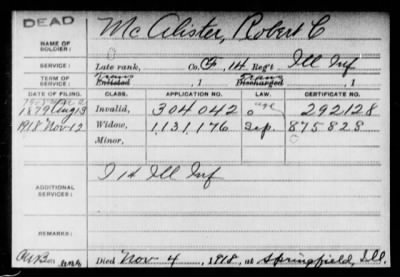 DEAD
McAlister, Robert C
NAME OF SOLDIER:
SERVICE: Late rank, Co. G, 14 Reg't Ill Inf
TERM OF SERVICE: Enlisted , 1 Discharged , 1
DATE OF FILING. CLASS. APPLICATION NO. LAW. CERTIFICATE NO.
1879 Aug 13 Invalid, 304042 age 292128
1918 Nov 12 Widow, 1,131,176 Sep. 875828
Minor,
I 14 Ill Inf
ADDITIONAL SERVICES:
REMARKS:
Died Nov 4, 1918, at Springfield, Ill.